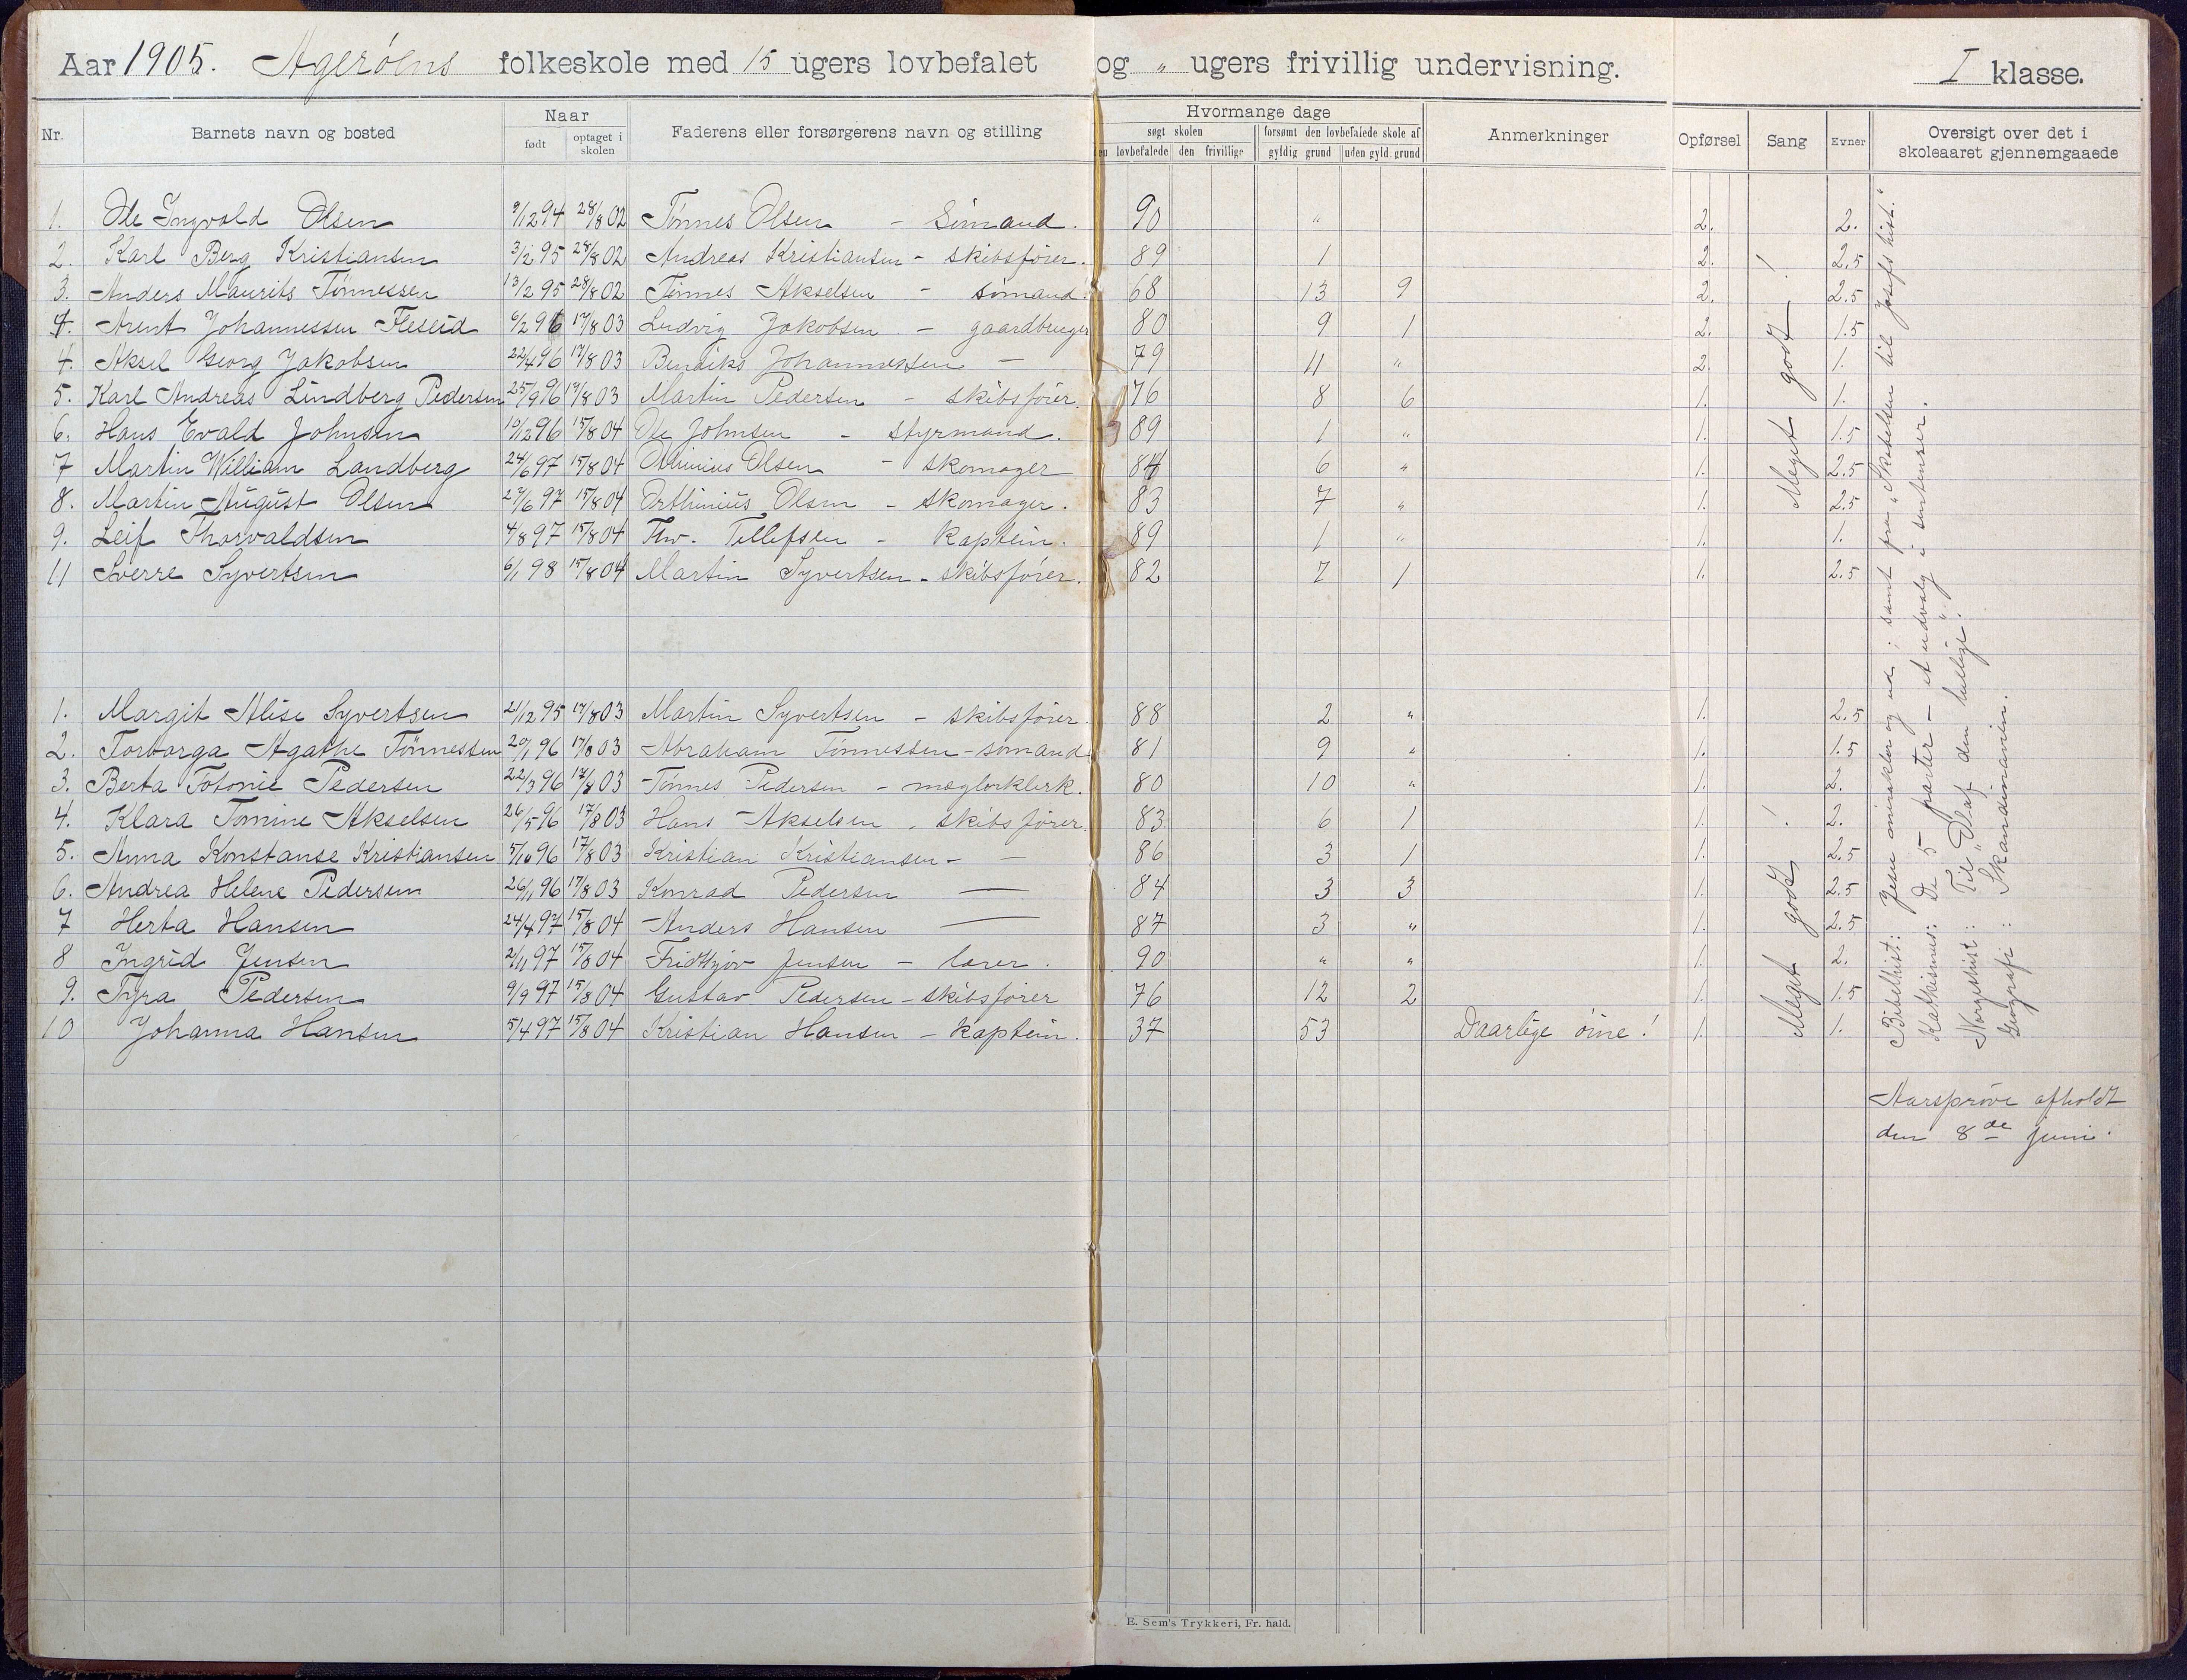 Aar 1905. Agerøens folkeskole med 15 ugers lovbefalet og " ugers frivillig undervisning. I klasse.
Nr. Barnets navn og bosted Naar født optaget i skolen Faderens eller forsørgerens navn og stilling Hvormange dage søgt skolen den lovbefalede den frivillige forsømt den lovbefalede skole af gyldig grund uden gyld. grund Anmerkninger Opførsel Sang Evner Oversigt over det i skoleaaret gjennemgaaede
1. Ole Ingvald Olsen 9/12 94 28/8 02 Tønnes Olsen - Sømand. 90 " 2. 2.
2. Karl Berg Kristiansen 3/2 95 28/8 02 Andreas Kristiansen - skibsfører. 89 1 2. 2.5
3. Anders Maurits Tønnessen 13/2 95 28/8 02 Tønnes Akselsen - sømand. 68 13 9 2. 2.5
4. Arent Johannessen Fleseid 6/2 96 17/8 03 Ludvig Jakobsen - gaardbruger 80 9 1 2. 1.5
4. Aksel Georg Jakobsen 22/4 96 17/8 03 Bendiks Johannessen — 79 11 " 2. 1.
5. Karl Andreas Lindberg Pedersen 25/9 96 17/8 03 Martin Pedersen - skibsfører. 76 8 6 1. 1.
6. Hans Evald Johnsen 10/12 96 15/8 04 Ole Johnsen - styrmand. 89 1 " 1. 1.5
7 Martin William Landberg 24/6 97 15/8 04 Olsen - skomager 84 6 " 1. 2.5
8. Martin August Olsen 27/6 97 15/8 04 Orthinius Olsen - skomager. 83 7 " 1. 2.5
9. Leif Thorvaldsen 4/8 97 15/8 04 Thv. Tellefsen - kaptein. 89 1 " 1. 1.
11 Sverre Syvertsen 6/1 98 15/8 04 Martin Syvertsen - skibsfører. 82 7 1 1. 2.5
Meget godt!
1. Margit Alise Syvertsen 21/12 95 17/8 03 Martin Syvertsen - skibsfører. 88 2 " 1. 2.5
2. Torborga Agathe Tønnessen 20/1 96 17/8 03 Abraham Tønnessen - sømand 81 9 " 1. 1.5
3. Berta Totonie Pedersen 22/3 96 17/8 03 Tønnes Pedersen - mæglerklerk. 80 10 " 1. 2.
4. Klara Tomine Akselsen 26/5 96 17/8 03 Hans Akselsen - skibsfører. 83 6 1 1. 2.
5. Anna Konstanse Kristiansen 5/10 96 17/8 03 Kristian Kristiansen - — 86 3 1 1. 2.5
6. Andrea Helene Pedersen 26/11 96 17/8 03 Konrad Pedersen — 84 3 3 1. 2.5
7 Herta Hansen 24/4 97 15/8 04 Anders Hansen — 87 3 " 1. 2.5
8 Ingrid Jensen 2/11 97 15/8 04 Fridtjov Jensen - lærer. 90 " " 1. 2.
9. Tyra Pedersen 9/9 97 15/8 04 Gustav Pedersen - skibsfører 76 12 2 1. 1.5
10 Johanna Hansen 5/4 97 15/8 04 Kristian Hansen - kaptein. 37 53 Daarlige øine! 1. 1.
Meget godt!
Bibelhist: Jesu mirakler og ud; samt fra "Skabelsen til Josefs hist."
Katkismus: De 5 parter - et udvalg i sentenser.
Norgeshist: Til "Olaf den hellige".
Geografi: Skandinavien.
Aarsprøve afholdt
den 8de juni.
E. Sem's Trykkeri, Fr. hald.